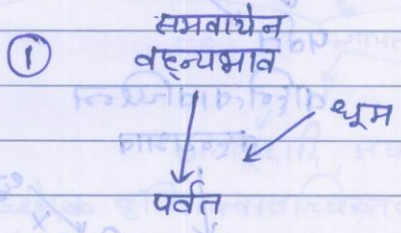 ①
समवायेन
वह्न्यभाव
धूम
पर्वत